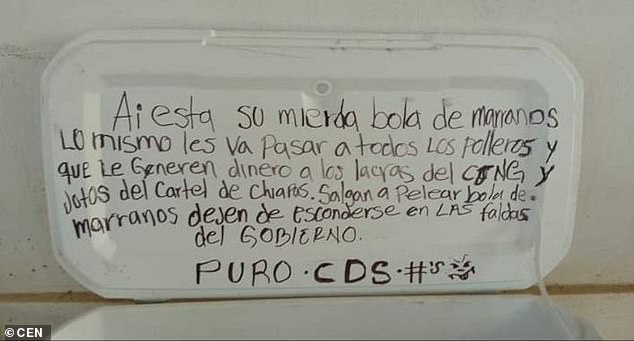 Ai esta su mierda bola de marranos
Lo mismo les va Pasar a todos Los Polleros y
que Le Generen dinero a los lacras del CJNG y
Jotos del Cartel de Chiapas. Salgan a Pelear bola de.
marranos dejen de esconderse en LAS faldas
del GOBIERNO.
PURO · CDS · #'s
© CEN